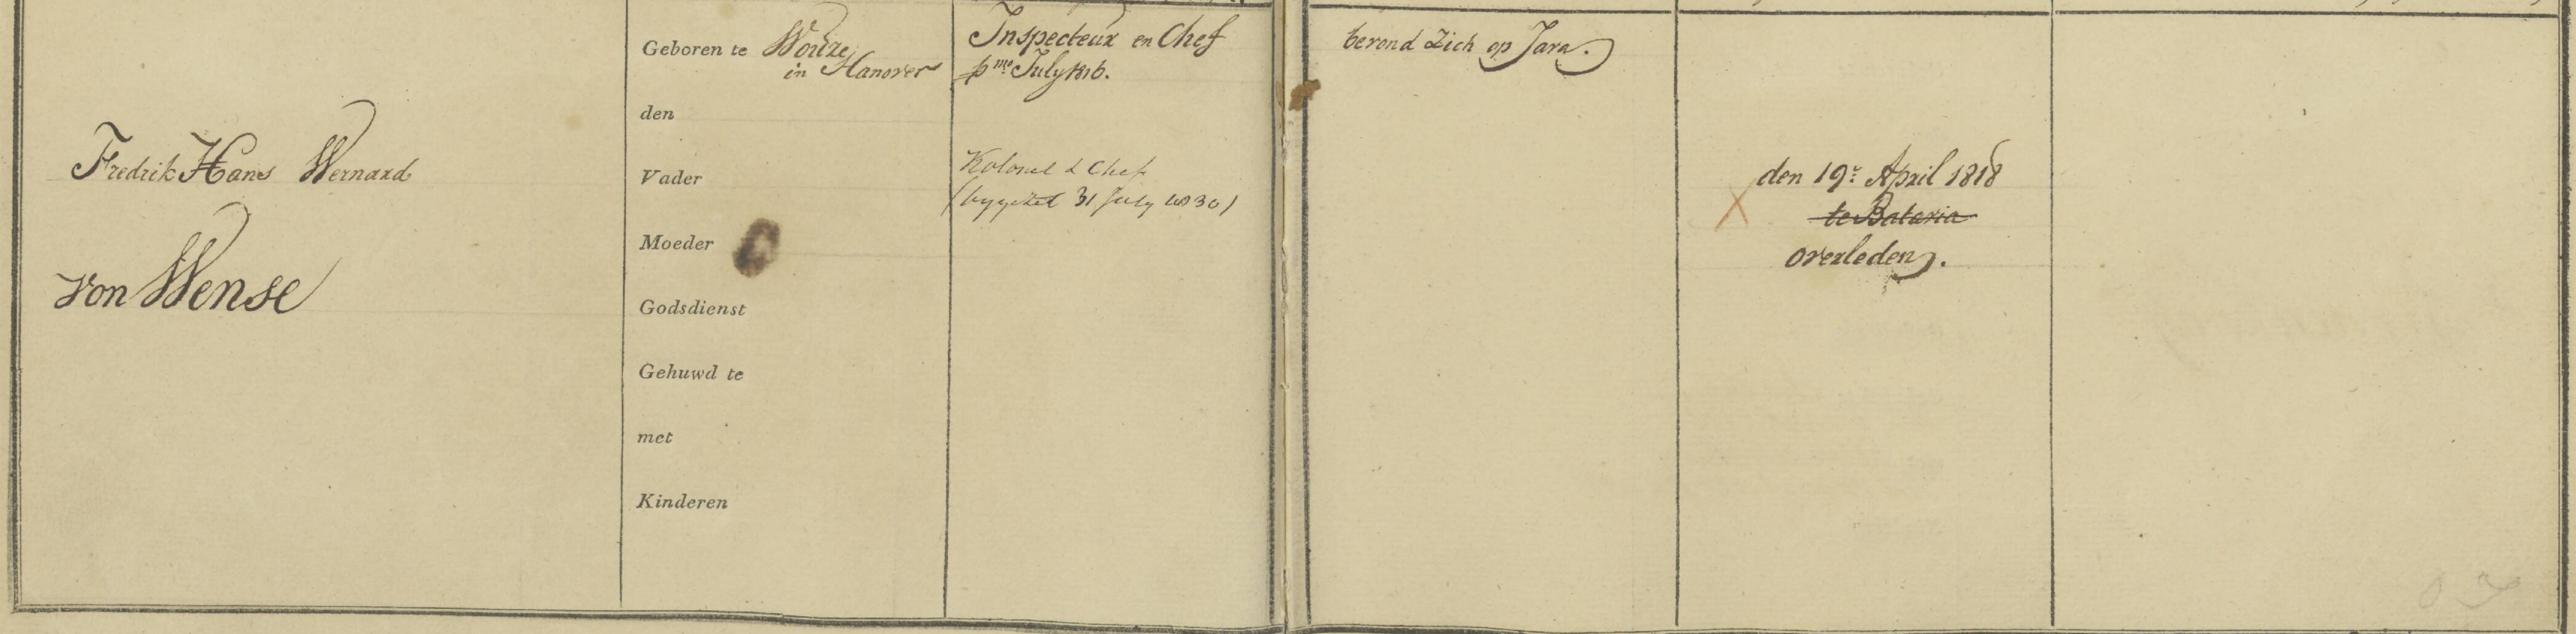 Fredrik Hans Wernard
von Wense
Geboren te
in Hanover
den
Vader
Moeder
Godsdienst
Gehuwd te
met
Kinderen
Inspecteur en Chef
pmo July 1816.
Kolonel & Chef
31 July 1830)
bevond zich op Java.
den 19e April 1818
te Batavia
overleden.